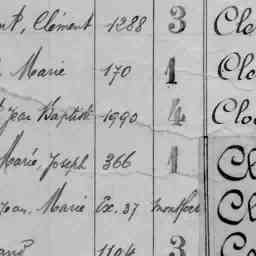 Clément, 1288 3 Cle
Marie 170 1 Clo
Jean Baptiste 1990 4 Clo
Marie, Joseph 366 1 Cl
Jean, Marie Ex. 37 Montfort Cl
1104 3